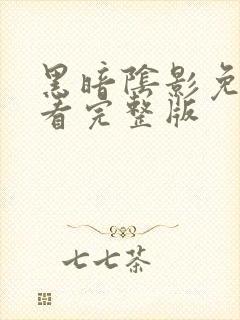 黑暗阴影免
看完整版
七七茶